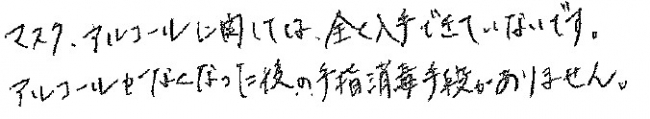 マスク、アルコールに関しては、全く入手できていないです。
アルコールがなくなった後の手指消毒手段がありません。